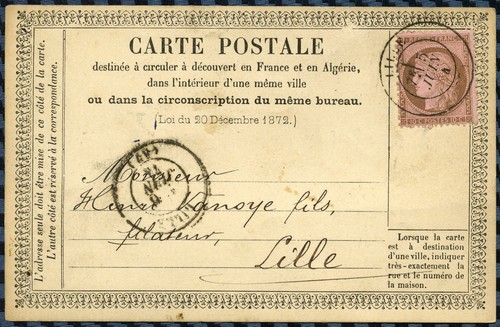 CARTE POSTALE
destinée à circuler à découvert en France et en Algérie,
dans l'intérieur d'une même ville
ou dans la circonscription du même bureau.
(Loi du 20 Décembre 1872.)
L'adresse seule doit être mise de ce côté de la carte.
L'autre côté est réservé à la correspondance.
Monsieur
Henri Vanoye fils,
filateur,
Lille
Lorsque la carte
est à destination
d'une ville, indiquer
très-exactement la
rue et le numéro de
la maison.
LILLE
10 C. POSTES 10 C.